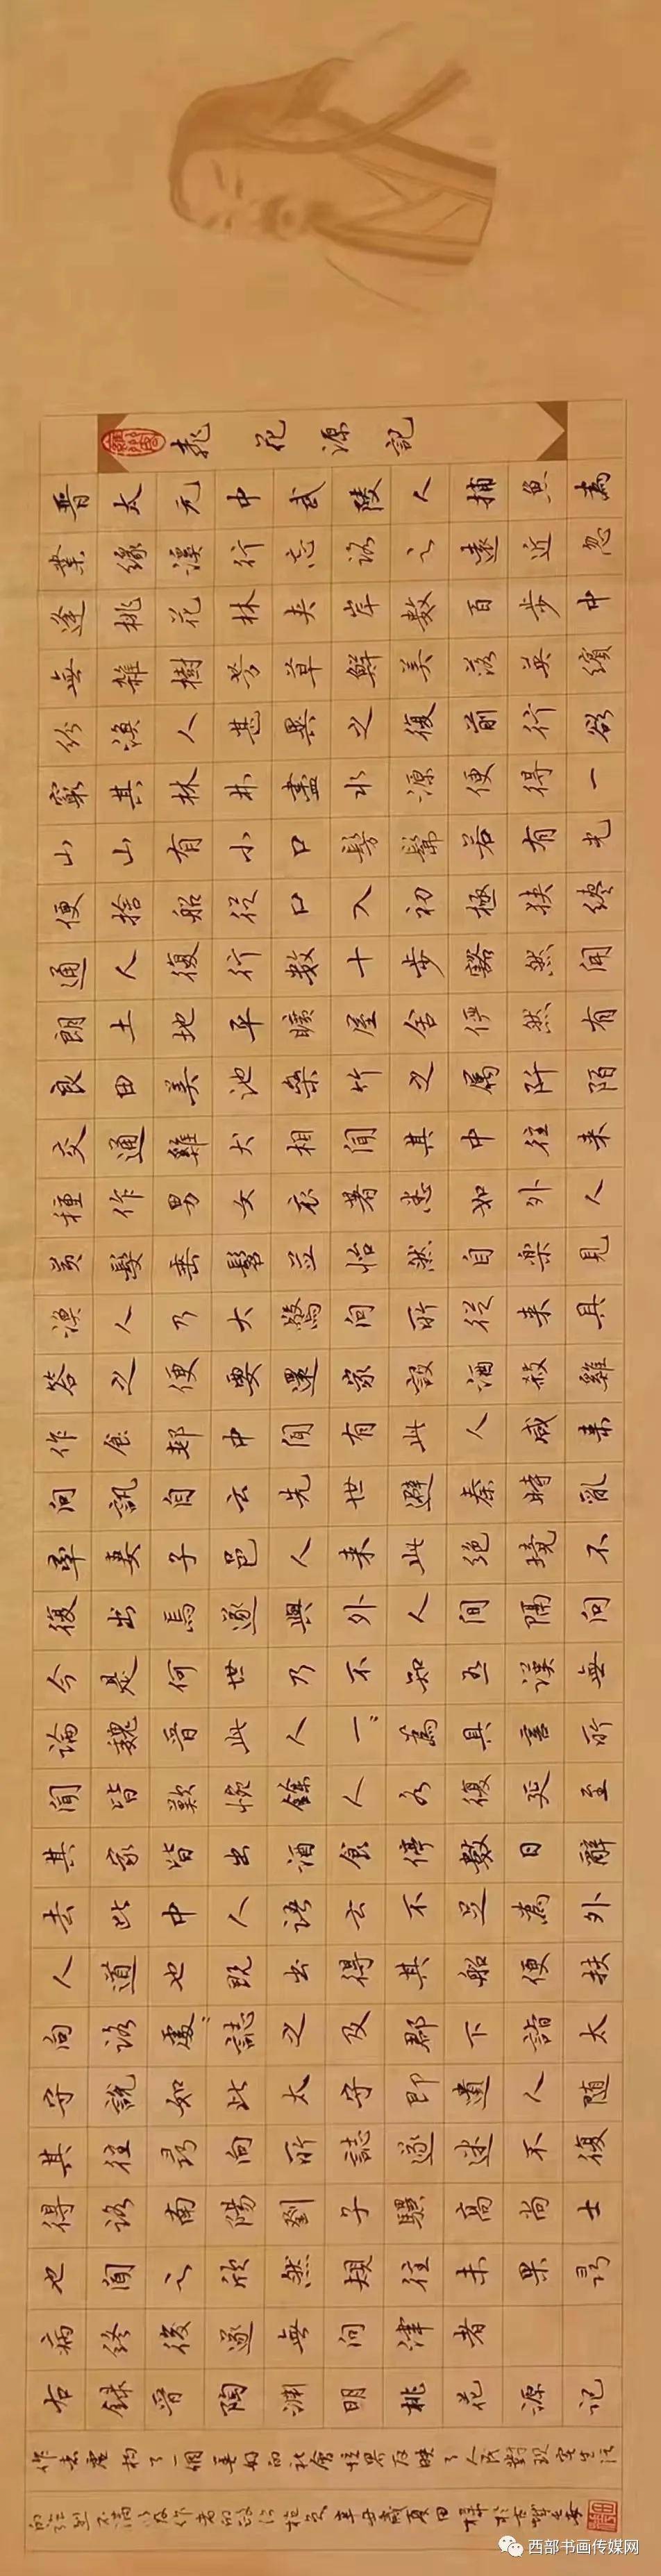 桃花源記
晋太元中武陵人捕魚為
業緣溪行忘路之遠近忽
逢桃花林夹岸數百步中
無雜樹芳草鮮美落英繽
紛漁人甚異之復前行欲
窮其林林盡水源便得一
山山有小口髣髴若有光
便捨船從口入初極狭纔
通人復行數十步豁然開
朗土地平曠屋舍儼然有
良田美池桑竹之属阡陌
交通雞犬相聞其中往来
種作男女衣著悉如外人
黄髮垂髫並怡然自樂見
漁人乃大驚問所從来具
答之便要還家設酒殺雞
作食邨中聞有此人咸来
問訊自云先世避秦時亂
率妻子邑人来此绝境不
復出焉遂與外人間隔問
今是何世乃不知有漢無
論魏晋此人一々為具言所
聞皆歎惋餘人各復延至
其家皆出酒食停數日辭
去此中人語云不足為外
人道也既出得其船便扶
向路處々誌之及郡下詣太
守説如此太守即遣人随
其往尋向所誌遂迷不復
得路南陽劉子驥高尚士
也聞之欣然規往未果尋
病終後遂無問津者
右録晋陶渊明桃花源记
作者虚构了一個美好的社會世界反映了人民對现实生活
的强烈不满以及作者的政治抱负辛丑歲夏田於古城长安
西部书画传媒网